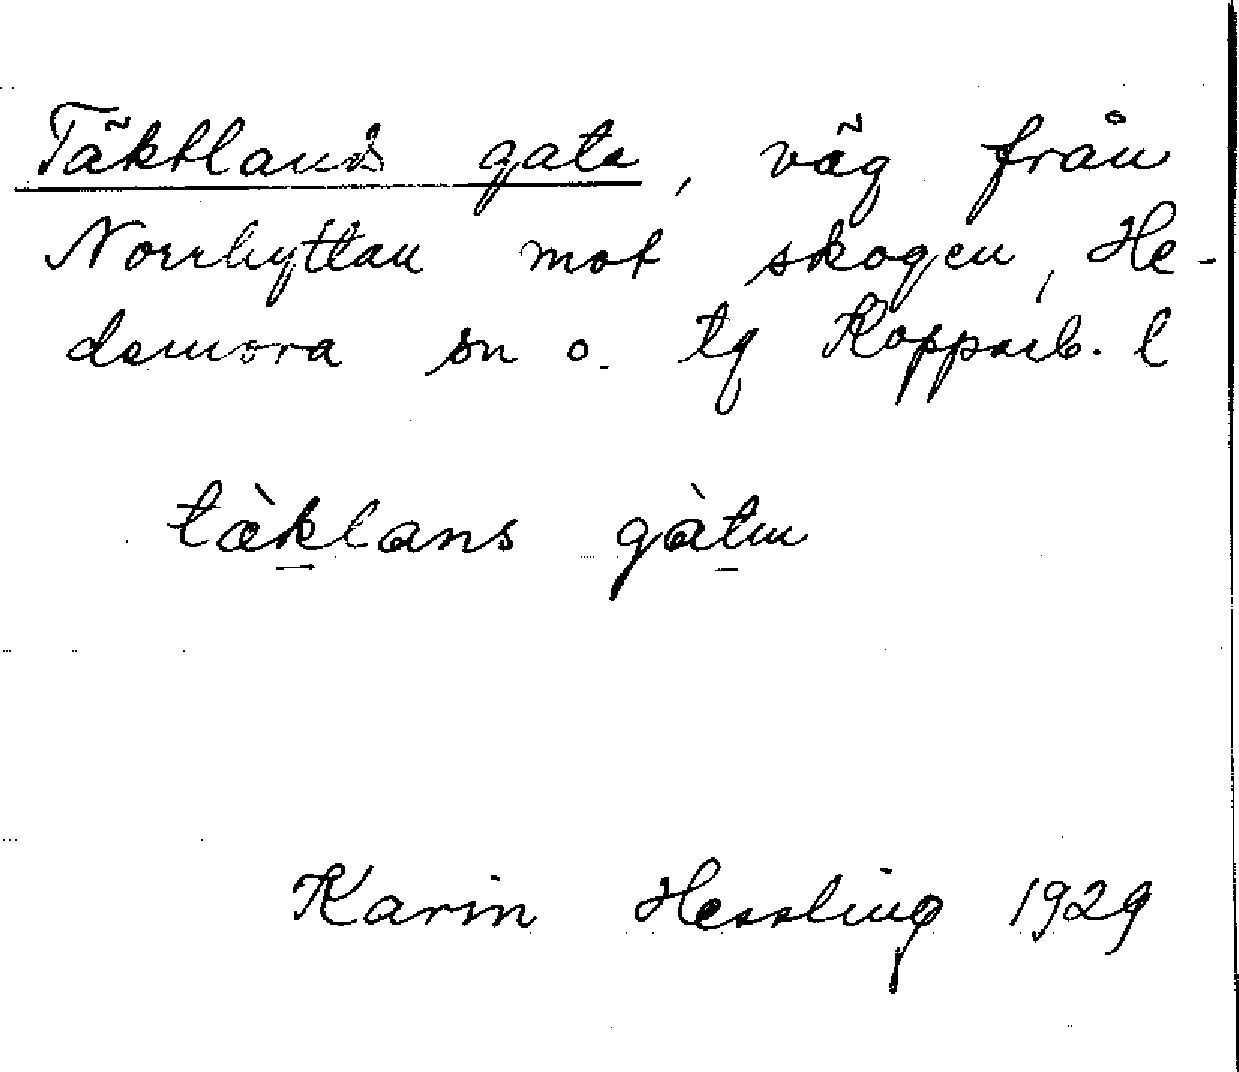 Täktlands gata, väg från
Norrhyttan mot skogen, He-
demora sn o. tg Kopparb. l
tæ̀klans gàtɯ
Karin Hessling 1929